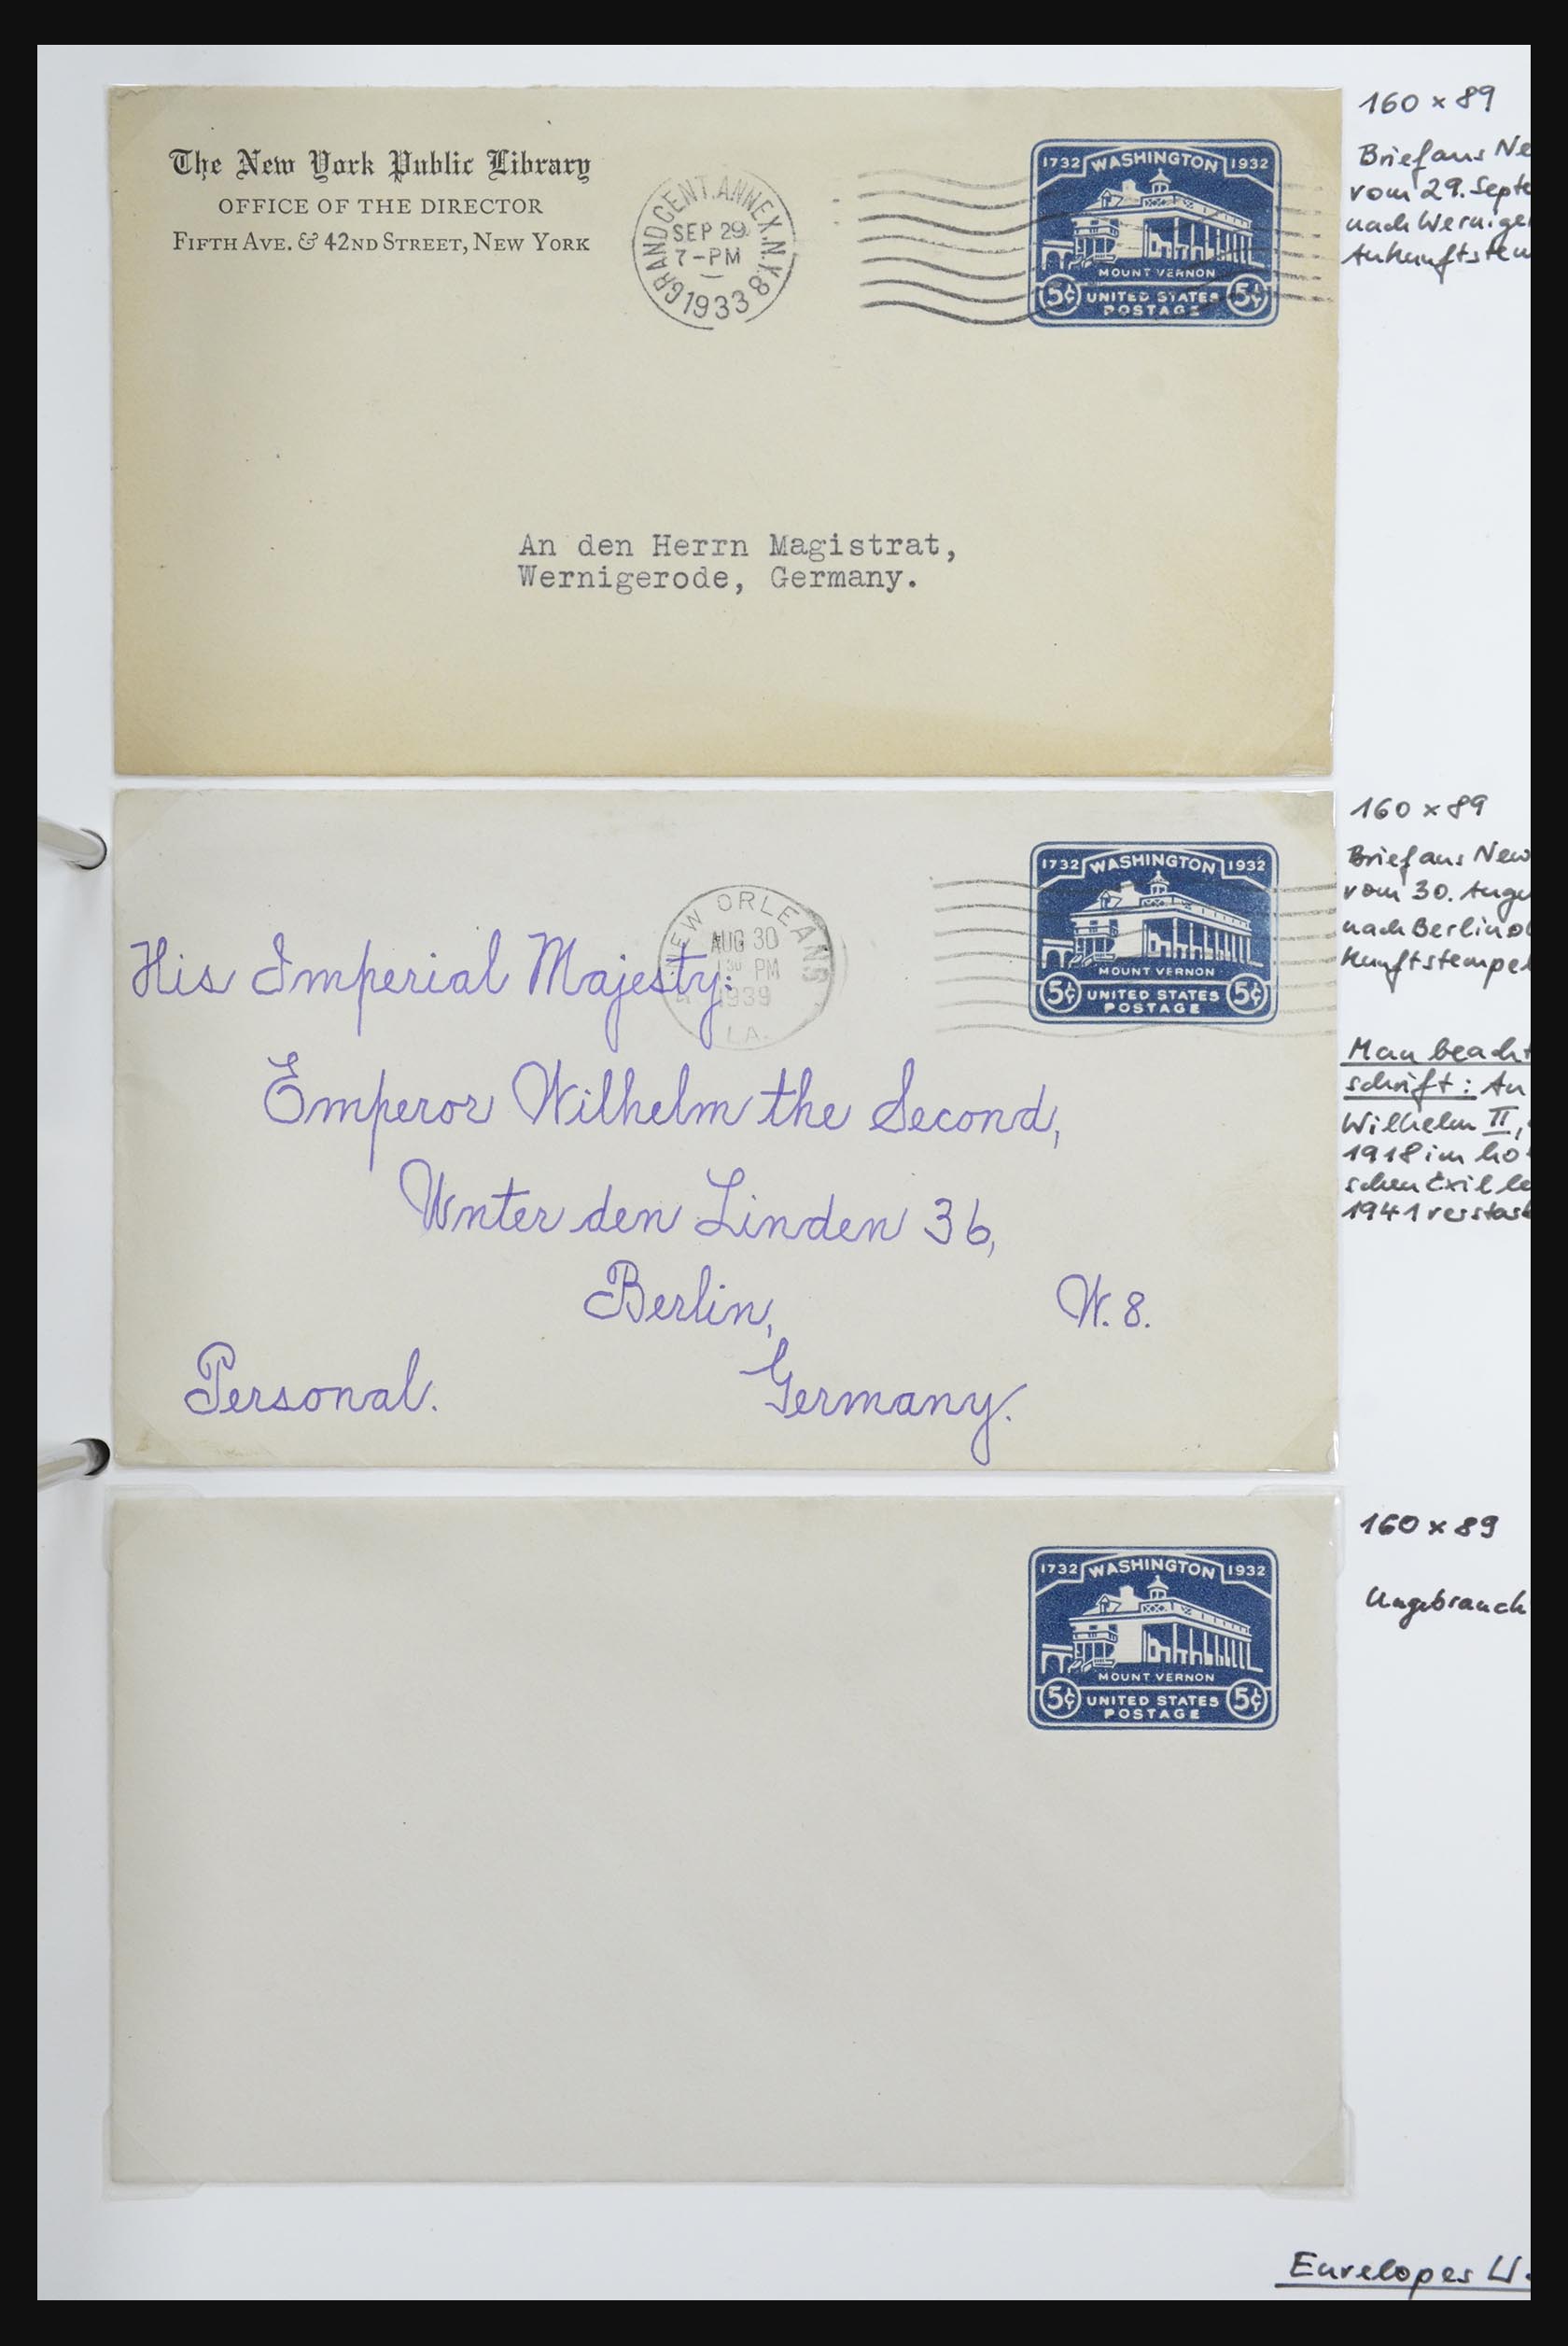 The New York Public Library
OFFICE OF THE DIRECTOR
FIFTH AVE. & 42ND STREET, NEW YORK
GRAND CENT. ANNEX. N.Y. 8
SEP 29
7-PM
1933
1732 WASHINGTON 1932
MOUNT VERNON
5¢ UNITED STATES 5¢
POSTAGE
An den Herrn Magistrat,
Wernigerode, Germany.
160 x 89
Brief aus Ne
vom 29. Septe
nach Wernige
Ankunftstem
NEW ORLEANS
AUG 30
130 PM
1939
LA.
1732 WASHINGTON 1932
MOUNT VERNON
5¢ UNITED STATES 5¢
POSTAGE
His Imperial Majesty:
Emperor Wilhelm the Second,
Unter den Linden 36,
Berlin, W. 8.
Personal. Germany.
160 x 89
Brief aus New
vom 30. Augu
nach Berlin o
kunftstempel
Man beacht
schrift: An
Wilhelm II,
1918 im hol
schen Exil le
1941 verstarb
1732 WASHINGTON 1932
MOUNT VERNON
5¢ UNITED STATES 5¢
POSTAGE
160 x 89
Ungebrauch
Envelopes U.